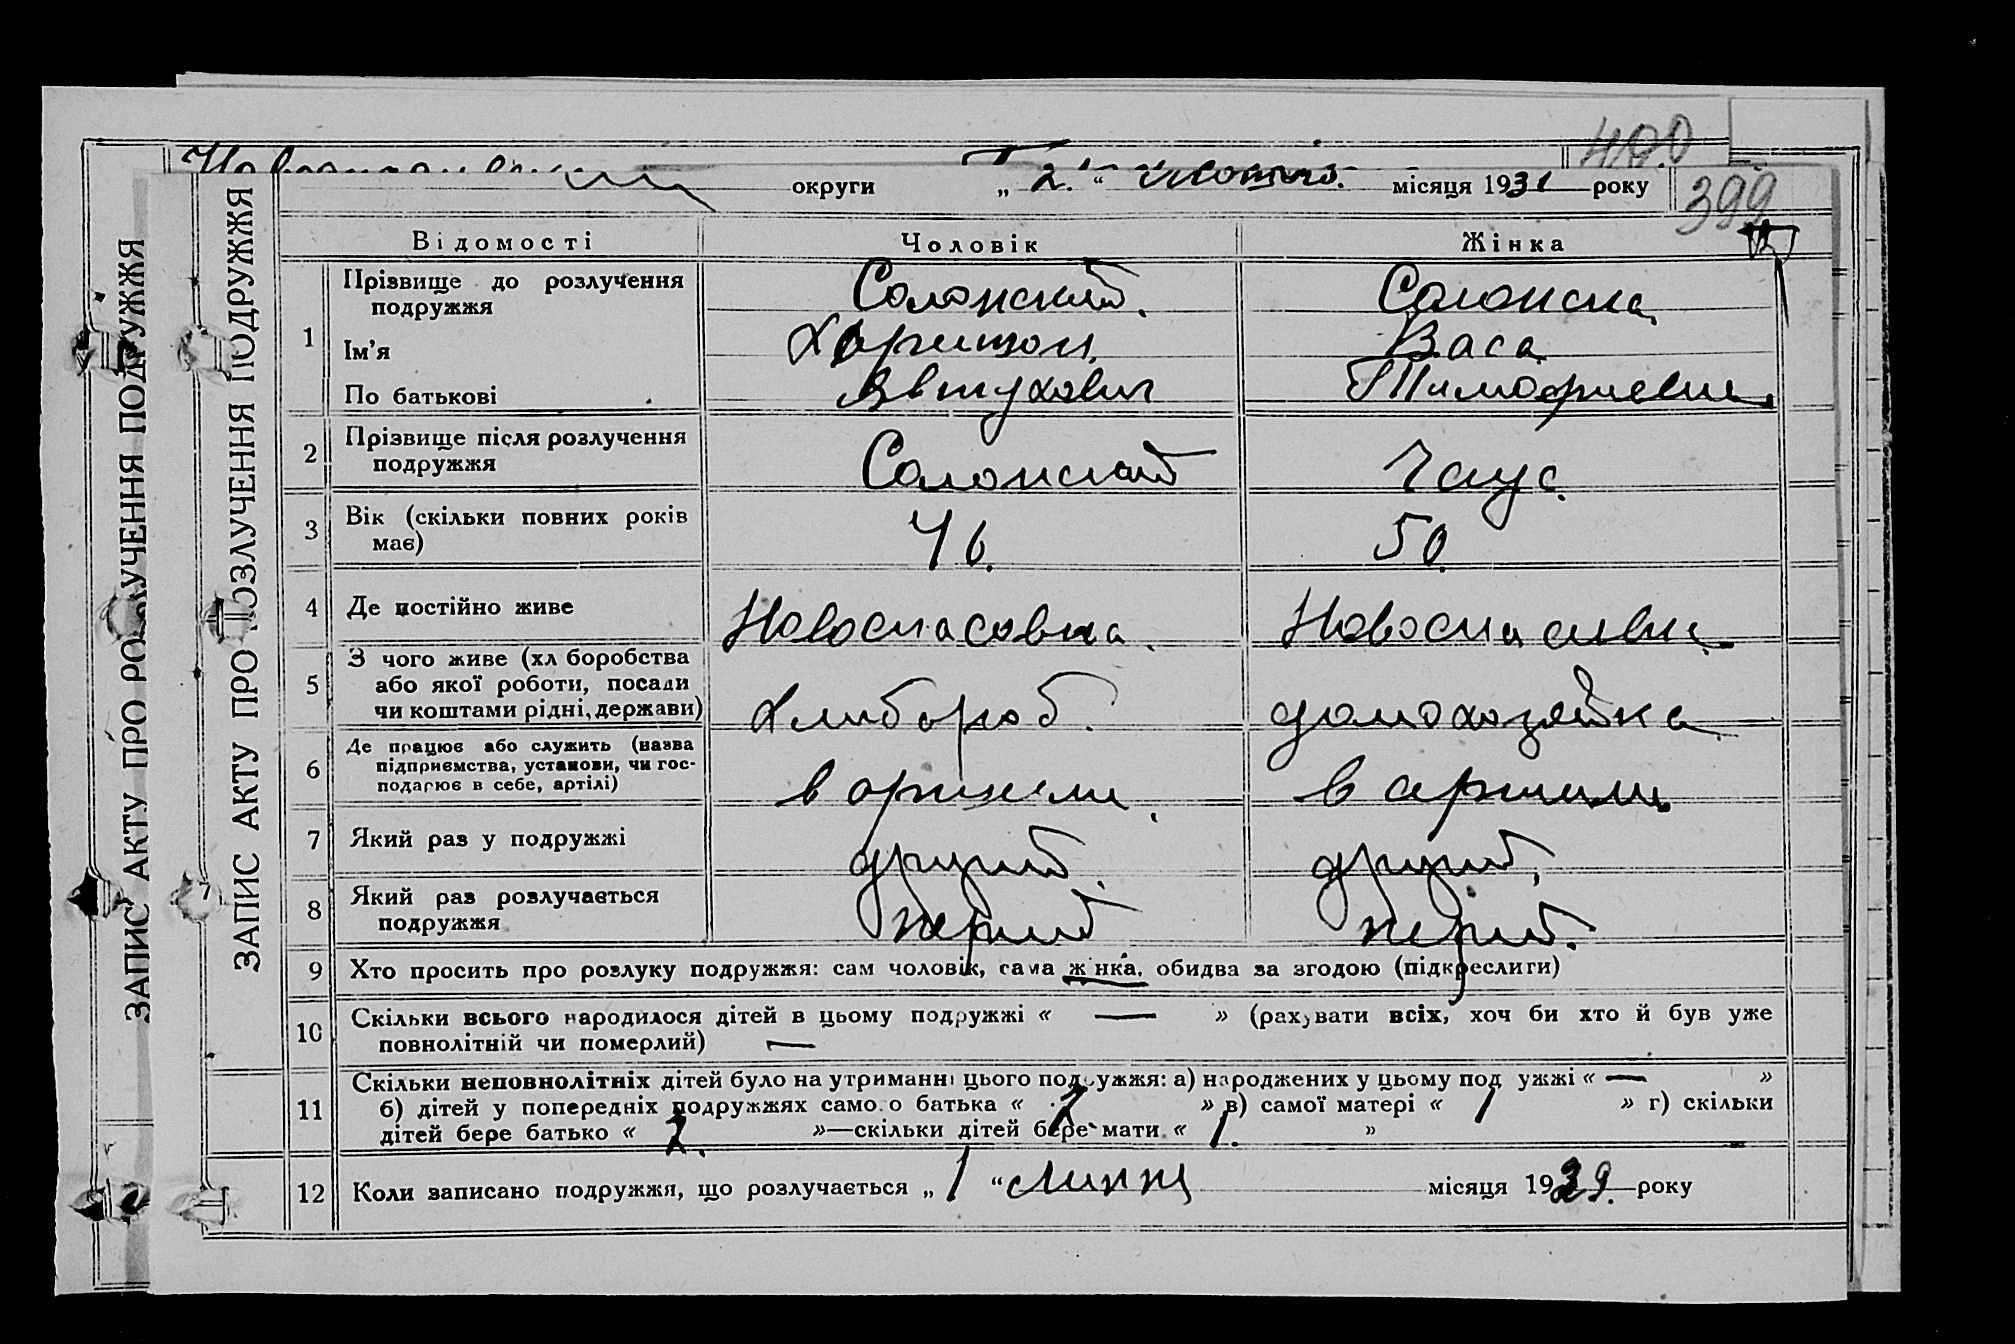 400
399
округи „ 2. “ місяця 1931 року
ЗАПИС АКТУ ПРО РОЗЛУЧЕННЯ ПОДРУЖЖЯ
ЗАПИС АКТУ ПРО РОЗЛУЧЕННЯ ПОДРУЖЖЯ
Відомості Чоловік Жінка
1 Прізвище до розлучення подружжя Солонский. Салонска
Ім'я Харитон. Васа
По батькові Явтухович Тимофиевна
2 Прізвище після розлучення
подружжя Салонский Чаус.
3 Вік (скільки повних років
має) 46. 50.
4 Де постійно живе Новоспасовка. Новоспасивка
5 З чого живе (хл боробства
або якої роботи, посади
чи коштами рідні, держави) хлибороб. домохозяйка
6 Де працює або служить (назва
підприємства, установи, чи гос-
подарює в себе, артілі) в артили в артили
7 Який раз у подружжі другий. другий,
8 Який раз розлучається
подружжя перший перший.
9 Хто просить про розлуку подружжя: сам чоловік, сама жінка, обидва за згодою (підкреслити)
10 Скільки всього народилося дітей в цьому подружжі « — » (рахувати всіх, хоч би хто й був уже
повнолітній чи померлий) —
11 Скільки неповнолітніх дітей було на утриманні цього подружжя: а) народжених у цьому подружжі « — »
б) дітей у попередніх подружжях само о батька « 2 » в) самої матері « 1 » г) скільки
дітей бере батько « 2. »—скільки дітей бере мати « 1. »
12 Коли записано подружжя, що розлучається „ 1 “ липня місяця 1929. року